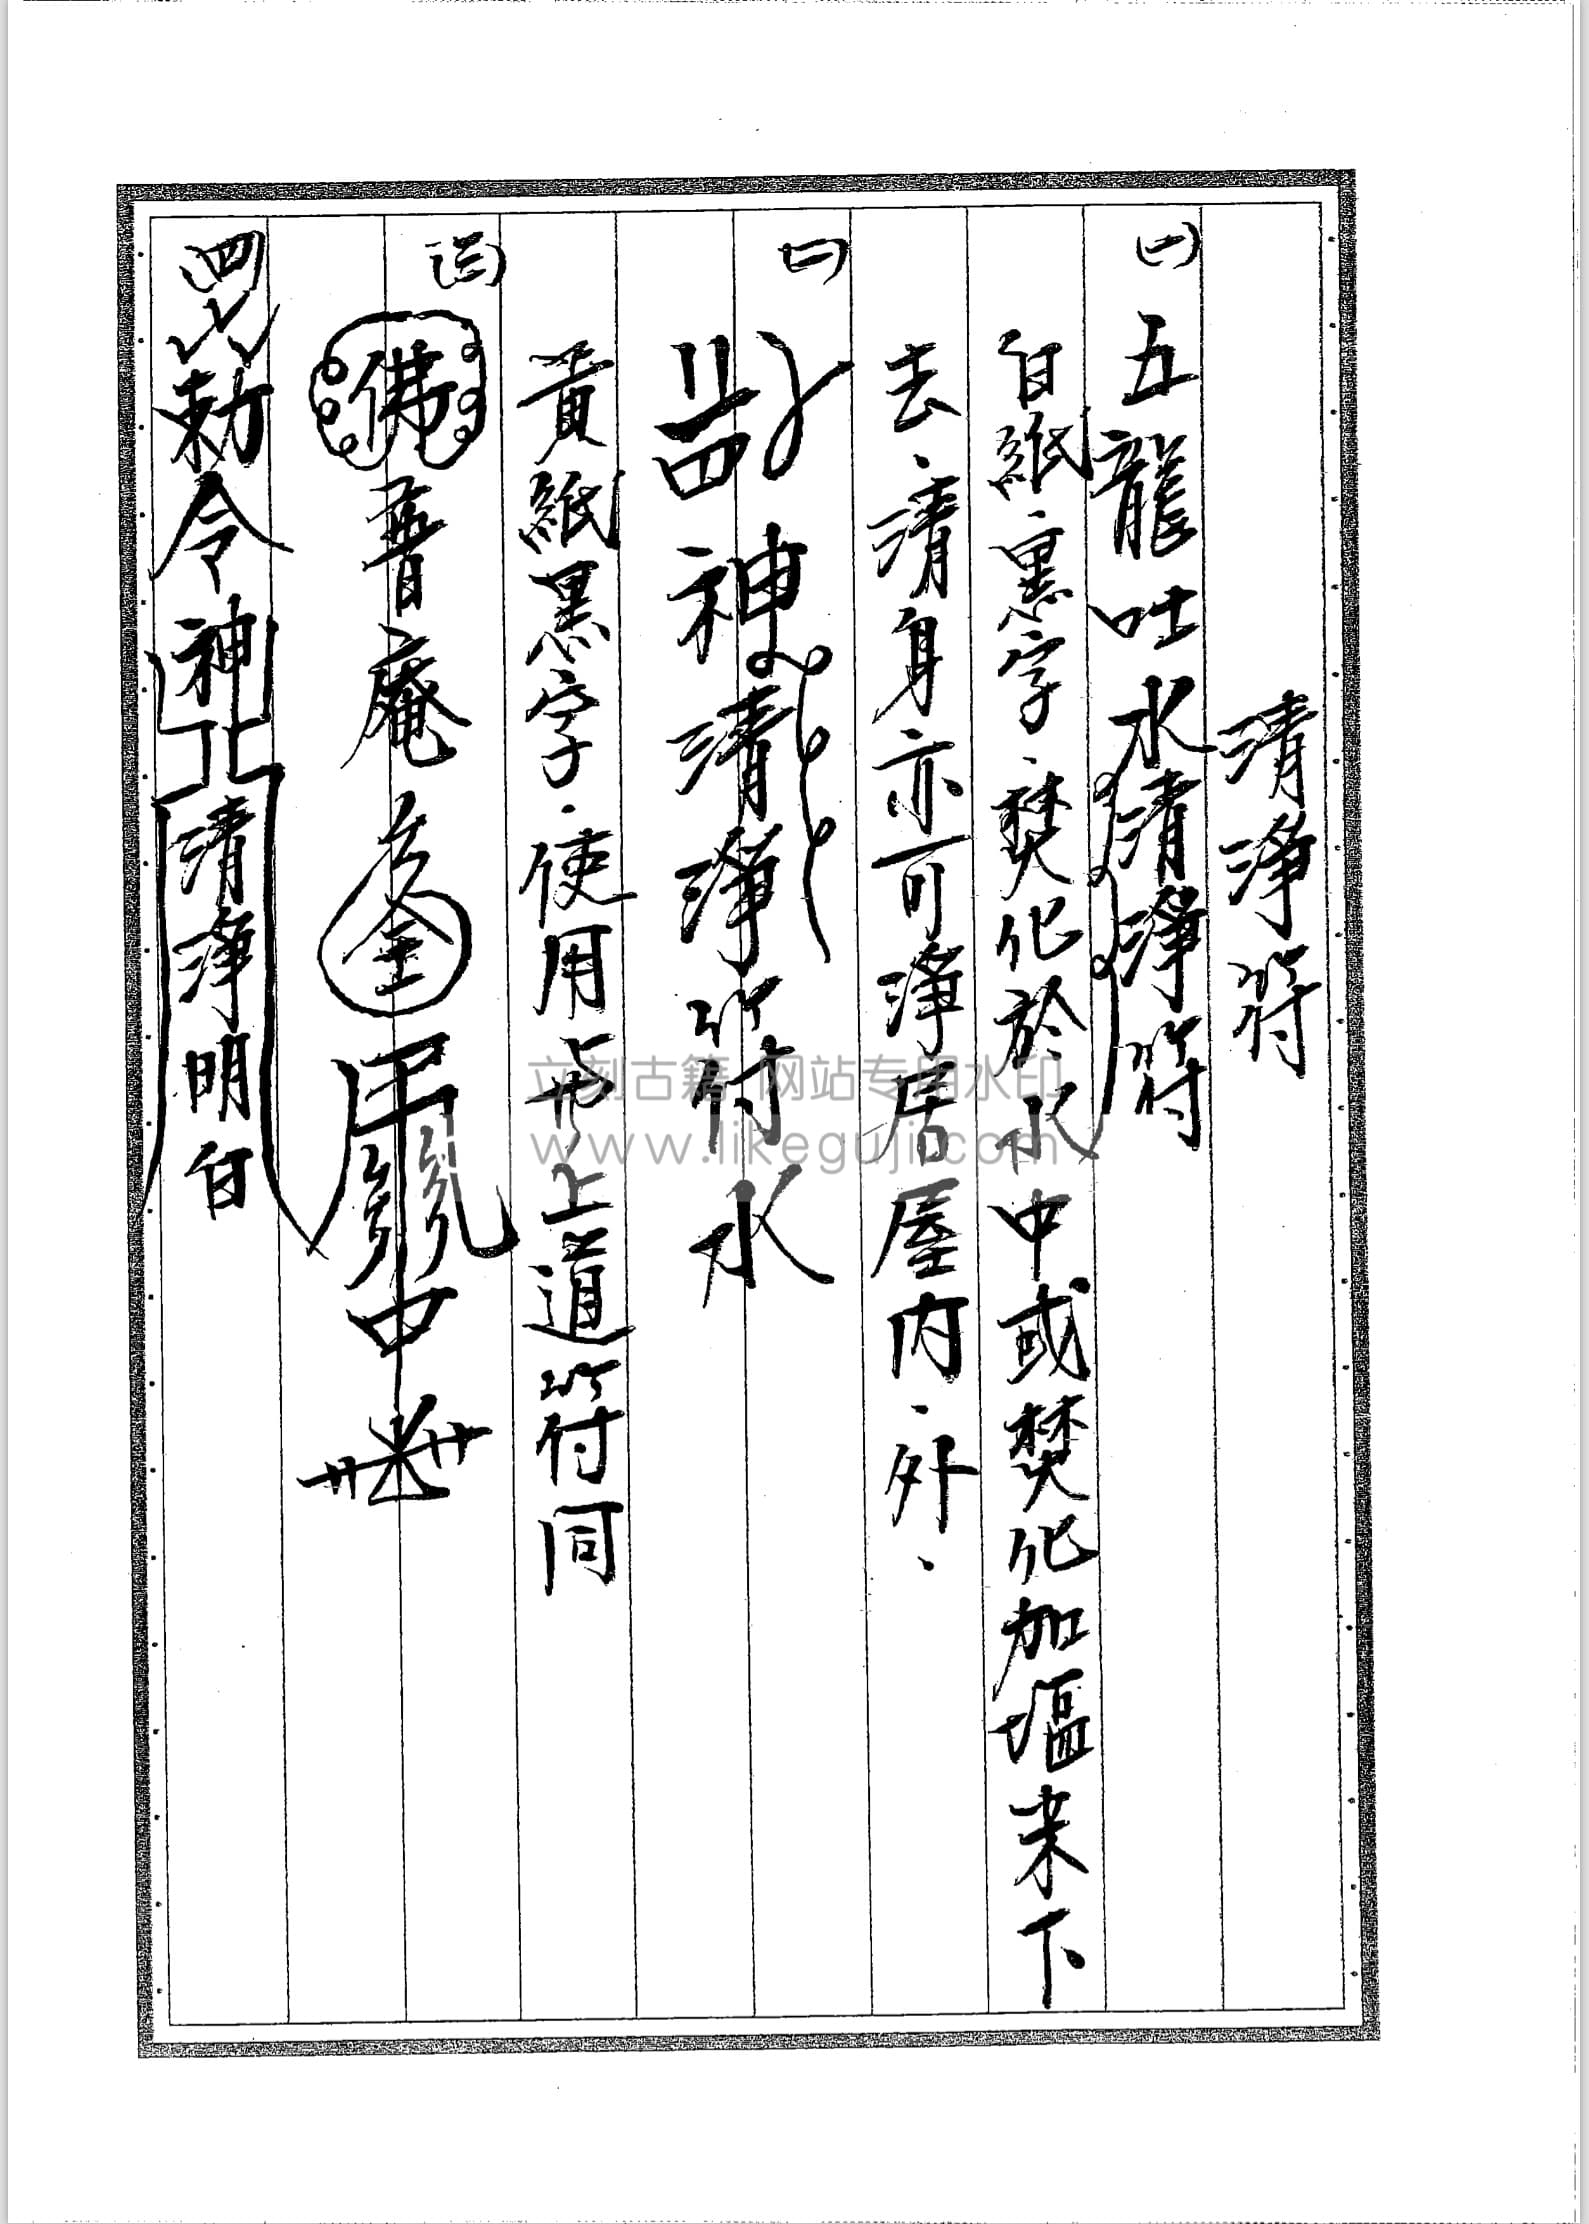 清淨符
(一)
五龍吐水清淨符
白紙.黑字.焚化於水中或焚化加塩米下
去.清身亦可淨居屋內.外.
(二)
神清淨符水
黃紙黑字.使用與上道符同
(三)
佛普庵
中
(四)
敕令神清淨明白
立刻古籍 网站专用水印
www.likeguji.com